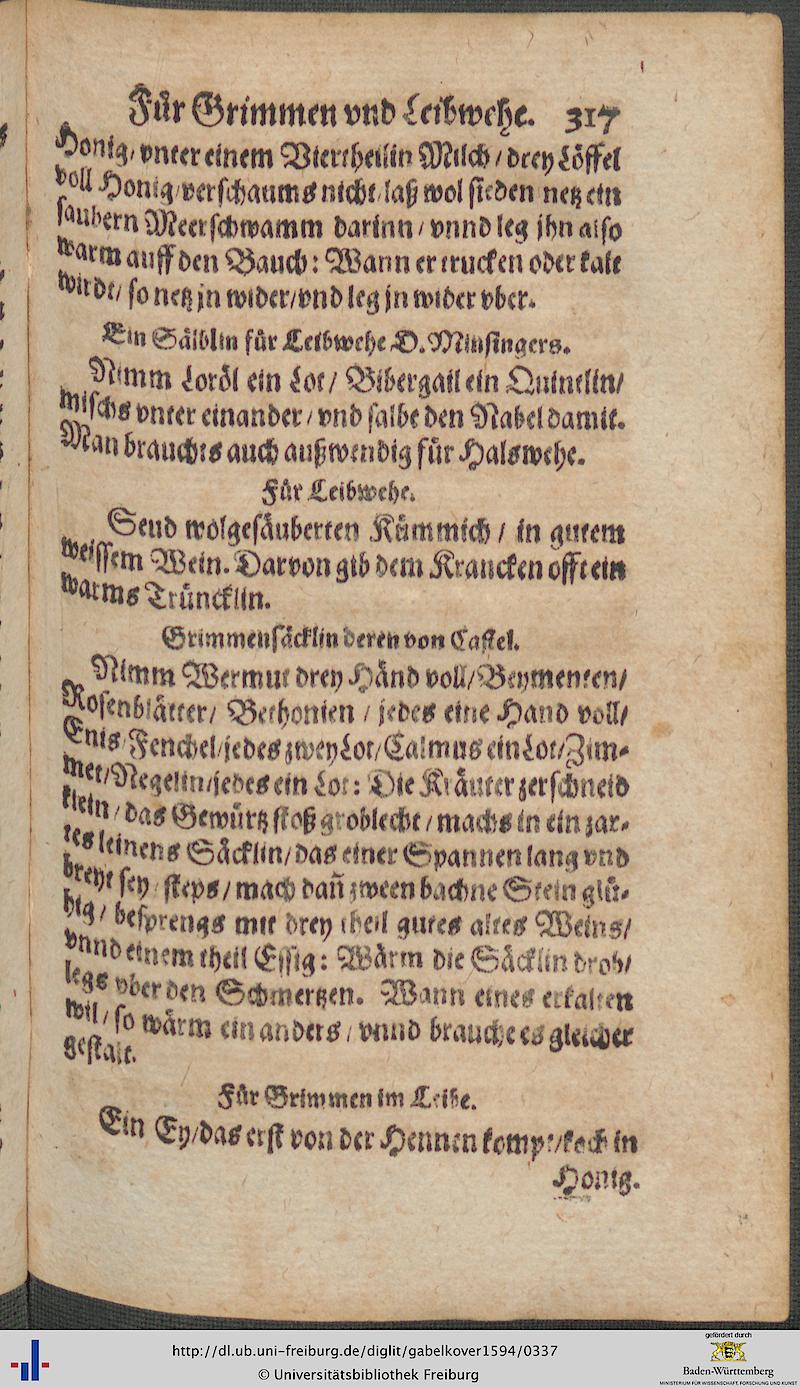 Für Grimmen vnd Leibwehe. 317
Honig/ vnter einem Viertheilin Milch/ drey Löffel
voll Honig/ verschaums nicht/ laß wol sieden netz ein
saubern Meerschwamm darinn/ vnnd leg jhn also
warm auff den Bauch: Wann er trucken oder kalt
wirdt/ so netz jn wider/ vnd leg jn wider vber.
Ein Sälblin für Leibwehe D. Minsingers.
Nimm Loröl ein Lot/ Bibergail ein Quintlin/
mischs vnter einander/ vnd salbe den Nabel damit.
Man brauchts auch außwendig für Halswehe.
Für Leibwehe.
Seud wolgesäuberten Kümmich/ in gutem
weissem Wein. Darvon gib dem Krancken offt ein
warms Trüncklin.
Grimmensäcklin deren von Castel.
Nimm Wermut drey Händ voll/ Beymenten/
Rosenblätter/ Bethonien/ jedes eine Hand voll/
Enis/ Fenchel/ jedes zwey Lot/ Calmus ein Lot/ Zim-
met/ Negelin/ jedes ein Lot: Die Kräuter zerschneid
klein/ das Gewürtz stoß groblecht/ machs in ein zar-
tes leinens Säcklin/ das einer Spannen lang vnd
breyt sey/ steps/ mach dañ zween bachne Stein glü-
hig/ besprengs mit drey theil gutes altes Weins/
vnnd einem theil Essig: Wärm die Säcklin drob/
legs vber den Schmertzen. Wann eines erkalten
wil/ so wärm ein anders/ vnnd brauche es gleicher
gestalt.
Für Grimmen im Leibe.
Ein Ey/ das erst von der Hennen kompt/ koch in
Honig.
http://dl.ub.uni-freiburg.de/diglit/gabelkover1594/0337
© Universitätsbibliothek Freiburg
gefördert durch
Baden-Württemberg
MINISTERIUM FÜR WISSENSCHAFT, FORSCHUNG UND KUNST